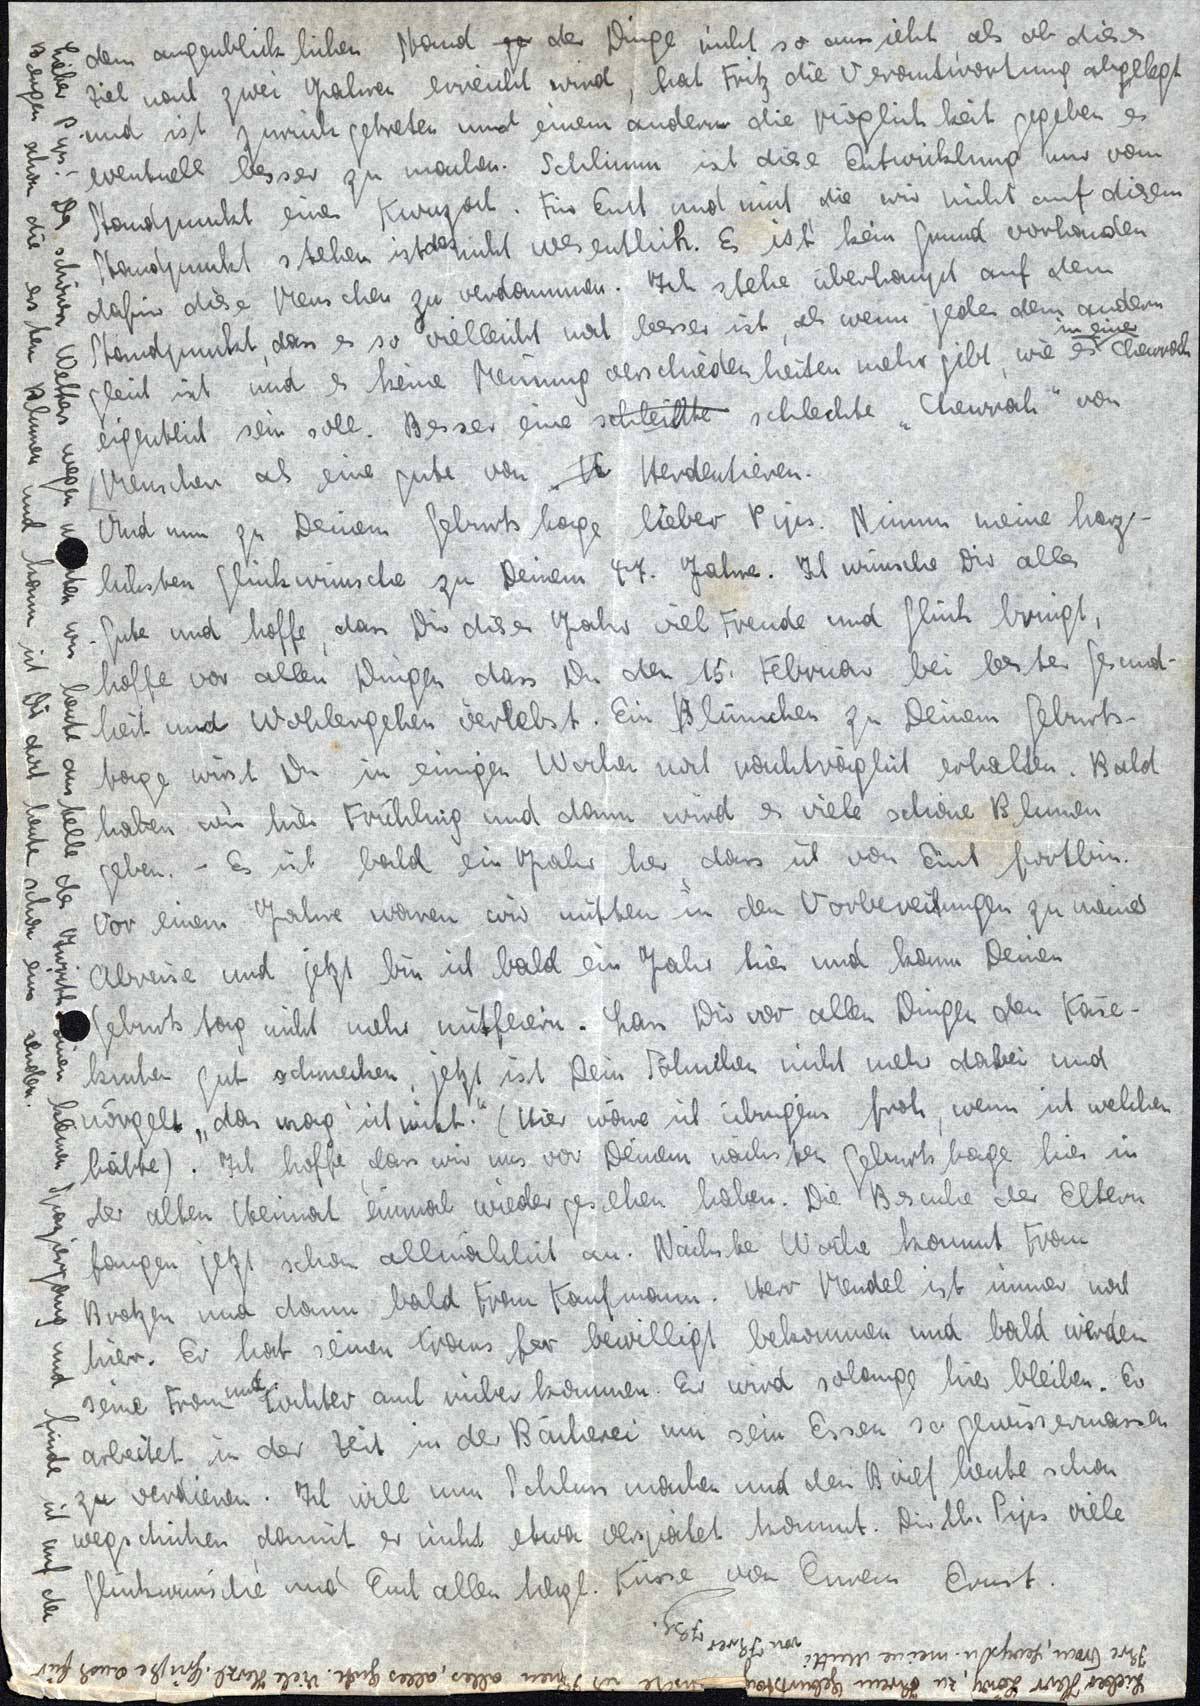 dem augenblicklichen Stand der Dinge nicht so aussieht, als ob dieses
Ziel nach zwei Jahren erreicht wird, hat Fritz die Verantwortung abgelegt
und ist zurückgetreten und einem andern die Möglichkeit gegeben es
eventuell besser zu machen. Schlimm ist diese Entwicklung nur vom
Standpunkt einer Kwuzah. Für Euch und mich die wir nicht auf disem
Standpunkt stehen ist das nicht wesentlich. Es ist kein Grund vorhanden
dafür diese Menschen zu verdammen. Ich stehe überhaupt auf dem
Standpunkt, dass es so vielleicht noch besser ist, als wenn jeder dem andern
gleich ist und es keine Meinungsverschiedenheiten mehr gibt, wie es in einer Chewrah
eigentlich sein soll. Besser eine schlechte „Chewrah" von
Menschen als eine gute von Herdentieren.
Und nun zu Deinem Geburtstage lieber Pips. Nimm meine herz-
lichsten Glückwünsche zu Deinem 47. Jahre. Ich wünsche Dir alles
Gute und hoffe, dass Dir dieses Jahr viel Freude und Glück bringt,
hoffe vor allen Dingen dass Du den 15. Februar bei bester Gesund-
heit und Wohlergehen verlebst. Ein Blümchen zu Deinem Geburts-
tage wirst Du in einigen Wochen noch nachträglich erhalten. Bald
haben wir hier Frühling und dann wird es viele schöne Blumen
geben. - Es ist bald ein Jahr her, dass ich von Euch fortbin.
Vor einem Jahre waren wir mitten in den Vorbereitungen zu meiner
Abreise und jetzt bin ich bald ein Jahr hier und kann Deinen
Geburtstag nicht mehr mitfeiern. Lass Dir vor allen Dingen den Käse-
kuchen gut schmecken, jetzt ist Dein Söhnchen nicht mehr dabei und
nörgelt „das mag ich nicht." (Hier wäre ich übrigens froh, wenn ich welchen
hätte). Ich hoffe, dass wir uns vor Deinem nächsten Geburtstage hier in
der alten Heimat einmal wiedergesehen haben. Die Besuche der Eltern
fangen jetzt schon allmählich an. Nächste Woche kommt Frau
Brotzen und dann bald Frau Kaufmann. Herr Mendel ist immer noch
hier. Er hat seinen Transfer bewilligt bekommen und bald werden
seine Frau und Tochter auch rüber kommen. Er wird solange hier bleiben. Er
arbeitet in der Zeit in der Bäckerei um sein Essen so gewissermassen
zu verdienen. Ich will nun Schluss machen und den Brief heute schon
wegschicken, damit er nicht etwa verspätet kommt. Dir lb. Pips viele
Glückwünsche und Euch allen herzl. Küsse von Eurem Ernst.
Lieber Pips! Des schönen Wetters wegen wir heute anstelle der einen kleinen Spaziergang und finde ich auf den
Bergen schon die ersten Blumen und kann ich Dir doch heute schon eins senden.
Lieber Herr, zu Ihrem Geburtstag wünsche ich Ihnen alles, alles Gute. Viele herzl. Grüße auch für
Ihre Frau, u. meine Mutti
von Ihrer